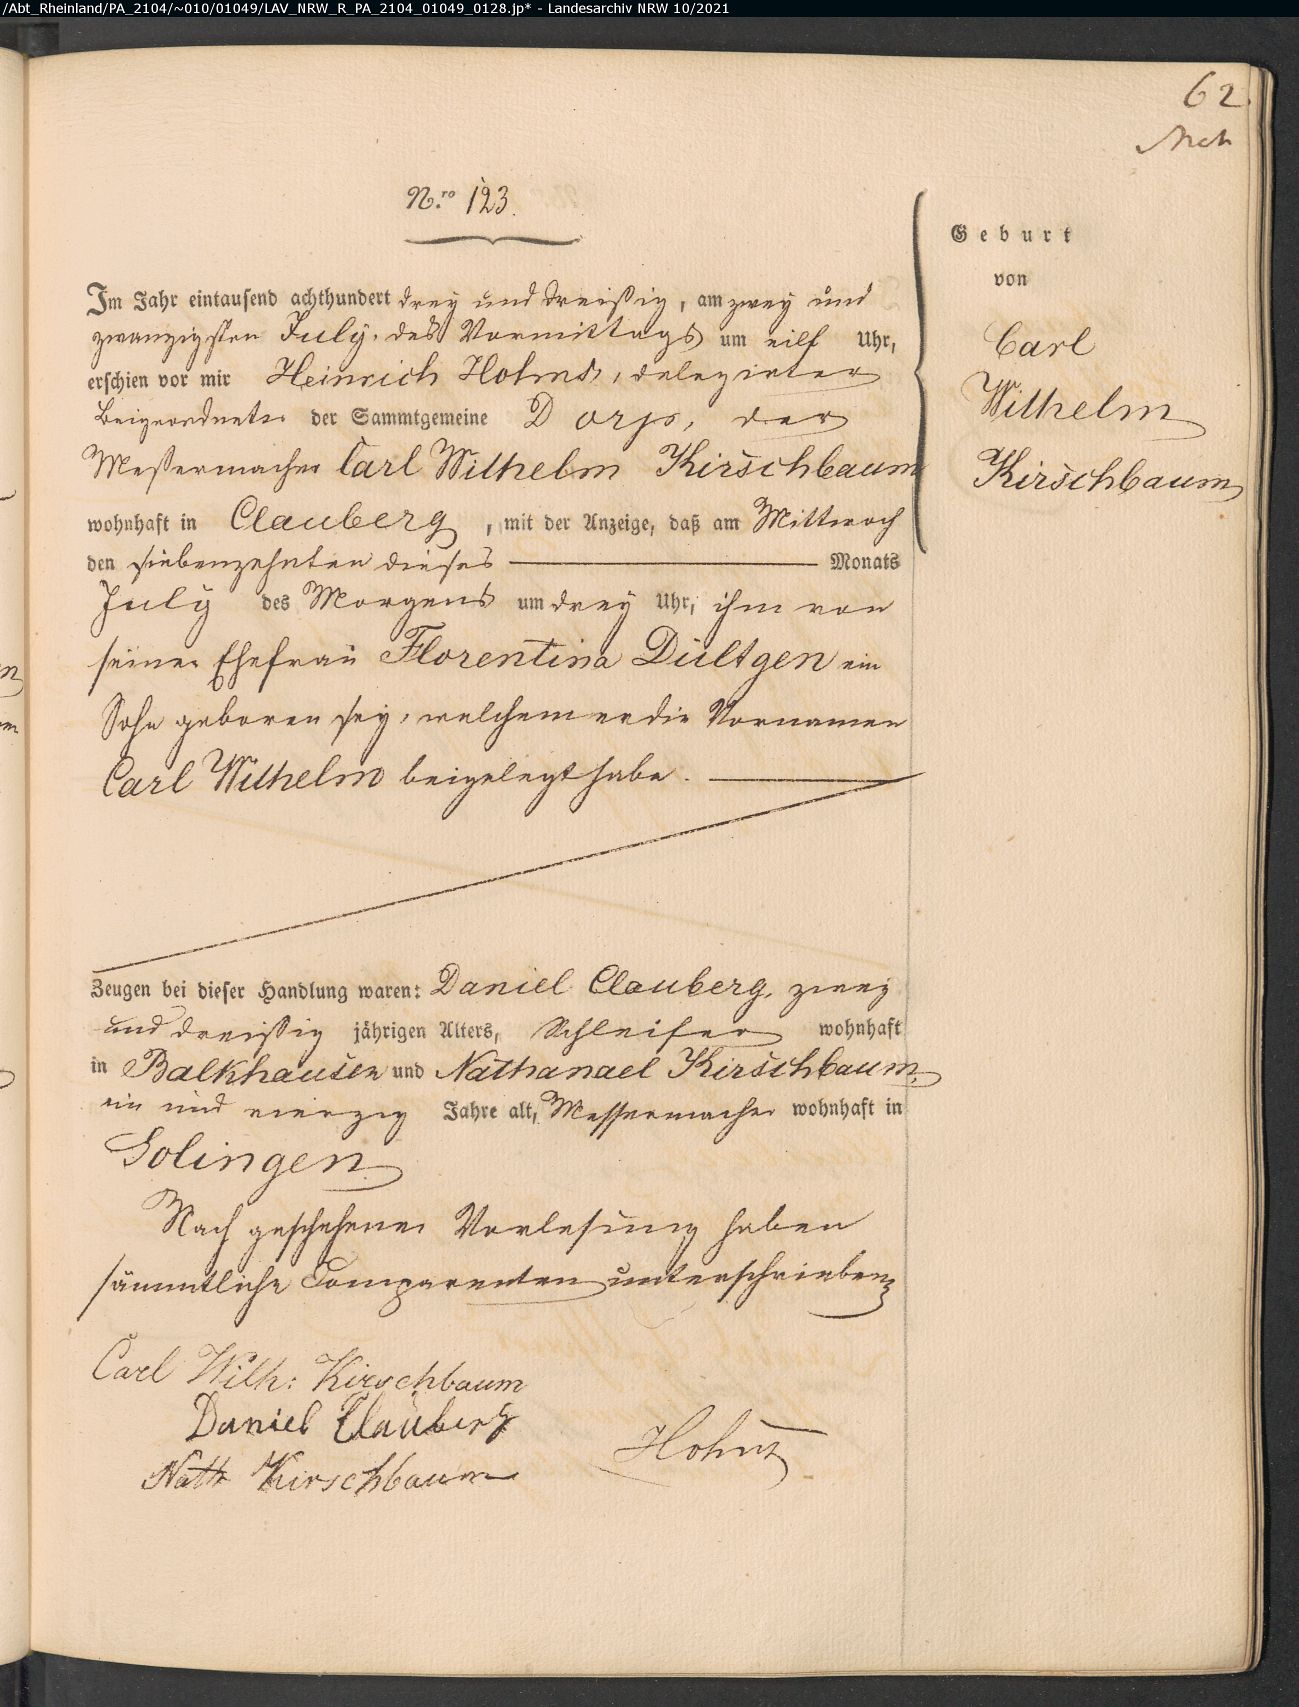 /Abt_Rheinland/PA_2104/~010/01049/LAV_NRW_R_PA_2104_01049_0128.jp* - Landesarchiv NRW 10/2021
62.
N.ro 123.
Geburt
von
Carl
Wilhelm
Kirschbaum
Im Jahr eintausend achthundert drey und dreißig, am zwey und
zwanzigsten July, des Vormittags um eilf Uhr,
erschien vor mir Heinrich Hohns, delegirter
Beigeordneter der Sammtgemeine Dorp, der
Meßermacher Carl Wilhelm Kirschbaum
wohnhaft in Clauberg, mit der Anzeige, daß am Mittwoch
den siebenzehnten dieses Monats
July des Morgens um drey Uhr, ihm von
seiner Ehefrau Florentina Dültgen ein
Sohn geboren sey, welchem er die Vornamen
Carl Wilhelm beigelegt habe.
Zeugen bei dieser Handlung waren: Daniel Clauberg, zwey
und dreißig jährigen Alters, Schleifer wohnhaft
in Balkhausen und Nathanael Kirschbaum,
ein und vierzig Jahre alt, Messermacher wohnhaft in
Solingen
Nach geschehener Vorlesung haben
sämmtliche Comparenten unterschrieben
Carl Wilh: Kirschbaum
Daniel Clauberg
Nath Kirschbaum
Hohns